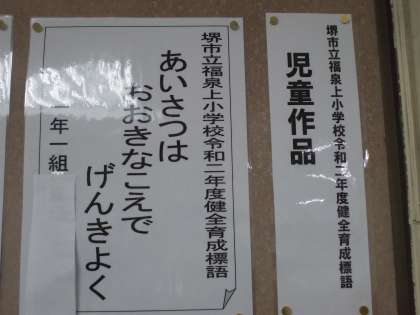 堺市立福泉上小学校令和二年度健全育成標語
児童作品
堺市立福泉上小学校令和二年度健全育成標語
あいさつは
おおきなこえで
げんきよく
一年一組